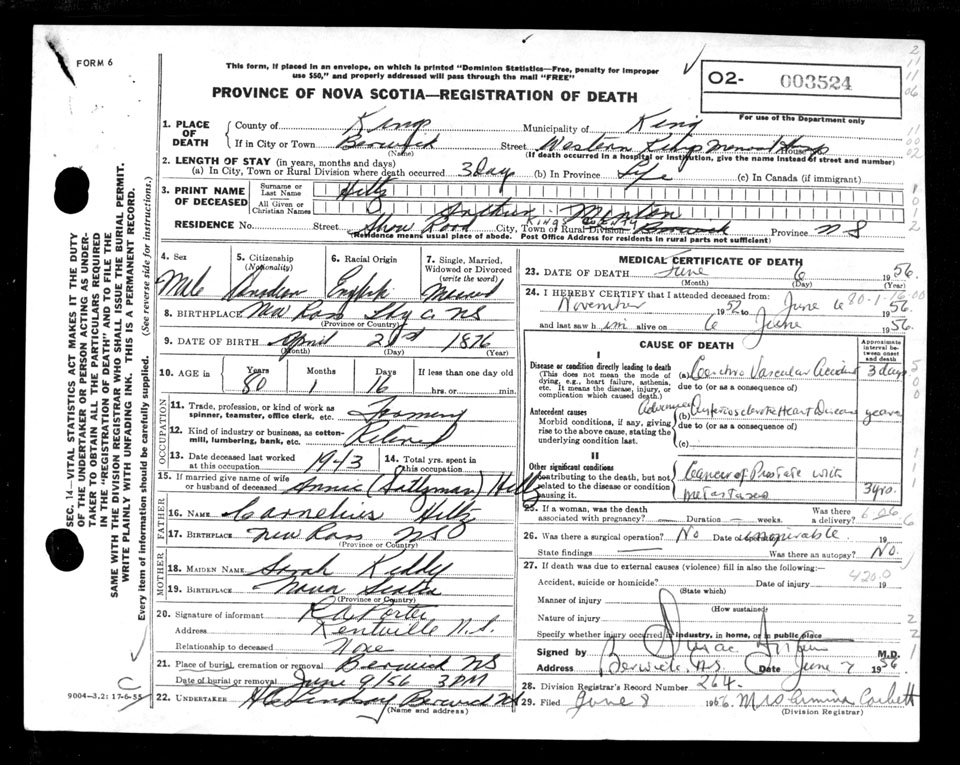 FORM 6
This form, if placed in an envelope, on which is printed "Dominion Statistics—Free, penalty for improper
use $50," and properly addressed will pass through the mail "FREE"
O2- 003524
For use of the Department only
PROVINCE OF NOVA SCOTIA—REGISTRATION OF DEATH
1. PLACE OF DEATH
County of Kings Municipality of King
If in City or Town Berwick (Name) Street Western Kings Memorial House
(If death occurred in a hospital or institution, give the name instead of street and number)
2. LENGTH OF STAY (in years, months and days)
(a) In City, Town or Rural Division where death occurred 3 Days (b) In Province Life (c) In Canada (if immigrant)
3. PRINT NAME OF DECEASED
Surname or Last Name Hiltz
All Given or Christian Names Arthur Minten
KINGS COUNTY
RESIDENCE No. Street Show Road City, Town or Rural Division Berwick Province N S
(Residence means usual place of abode. Post Office Address for residents in rural parts not sufficient)
4. Sex Male
5. Citizenship (Nationality) Canadian
6. Racial Origin English
7. Single, Married, Widowed or Divorced (write the word) Married
8. BIRTHPLACE New Ross NS
(Province or Country)
9. DATE OF BIRTH April (Month) 21st (Day) 1876 (Year)
10. AGE in Years 80 Months 1 Days 16 If less than one day old
hrs. or min.
OCCUPATION
11. Trade, profession, or kind of work as
spinner, teamster, office clerk, etc.
12. Kind of industry or business, as cotten-
mill, lumbering, bank, etc. Retired
13. Date deceased last worked
at this occupation 1943
14. Total yrs. spent in
this occupation
15. If married give name of wife
or husband of deceased Annie (Saltzman) Hiltz
FATHER
16. NAME Cornelius Hiltz
17. BIRTHPLACE New Ross NS
(Province or Country)
MOTHER
18. MAIDEN NAME Sarah Keddy
19. BIRTHPLACE Nova Scotia
(Province or Country)
20. Signature of informant R A Porter
Address Kentville N.S.
Relationship to deceased None
21. Place of burial, cremation or removal Berwick NS
Date of burial or removal June 9/56 3 PM
22. UNDERTAKER Lindsay Berwick NS
(Name and address)
MEDICAL CERTIFICATE OF DEATH
23. DATE OF DEATH June (Month) 6 (Day) 1956. (Year)
24. I HEREBY CERTIFY that I attended deceased from:
November 1952 to June 6 1956.
80-1-16.00
and last saw him alive on 6 June 1956.
CAUSE OF DEATH
Approximate interval between onset and death
I
Disease or condition directly leading to death
(This does not mean the mode of
dying, e.g., heart failure, asthenia,
etc. It means the disease, injury, or
complication which caused death.)
(a) Cerebro Vascular Accident 3 days
due to (or as a consequence of)
Antecedent causes
Morbid conditions, if any, giving
rise to the above cause, stating the
underlying condition last.
Advanced (b) Arteriosclerotic Heart Disease years
due to (or as a consequence of)
(c)
II
Other significant conditions
contributing to the death, but not
related to the disease or condition
causing it.
Cancer of Prostate with
metastases 3 yrs.
25. If a woman, was the death
associated with pregnancy? Duration weeks.
Was there
a delivery?
26. Was there a surgical operation? No Date of operation inoperable 19
State findings Was there an autopsy? No.
27. If death was due to external causes (violence) fill in also the following:
420.0
Accident, suicide or homicide? Date of injury 19
(State which)
Manner of injury
(How sustained)
Nature of injury
Specify whether injury occurred in industry, in home, or in public place
Signed by M.D.
Address Berwick, N.S. Date June 7 1956
28. Division Registrar's Record Number 264.
29. Filed June 8 1956. Mrs Corbett
(Division Registrar)
SEC. 14—VITAL STATISTICS ACT MAKES IT THE DUTY
OF THE UNDERTAKER OR PERSON ACTING AS UNDER-
TAKER TO OBTAIN ALL THE PARTICULARS REQUIRED
IN THE "REGISTRATION OF DEATH" AND TO FILE THE
SAME WITH THE DIVISION REGISTRAR WHO SHALL ISSUE THE BURIAL PERMIT.
WRITE PLAINLY WITH UNFADING INK. THIS IS A PERMANENT RECORD.
Every item of information should be carefully supplied. (See reverse side for instructions.)
C
9004-3.2: 17-6-55